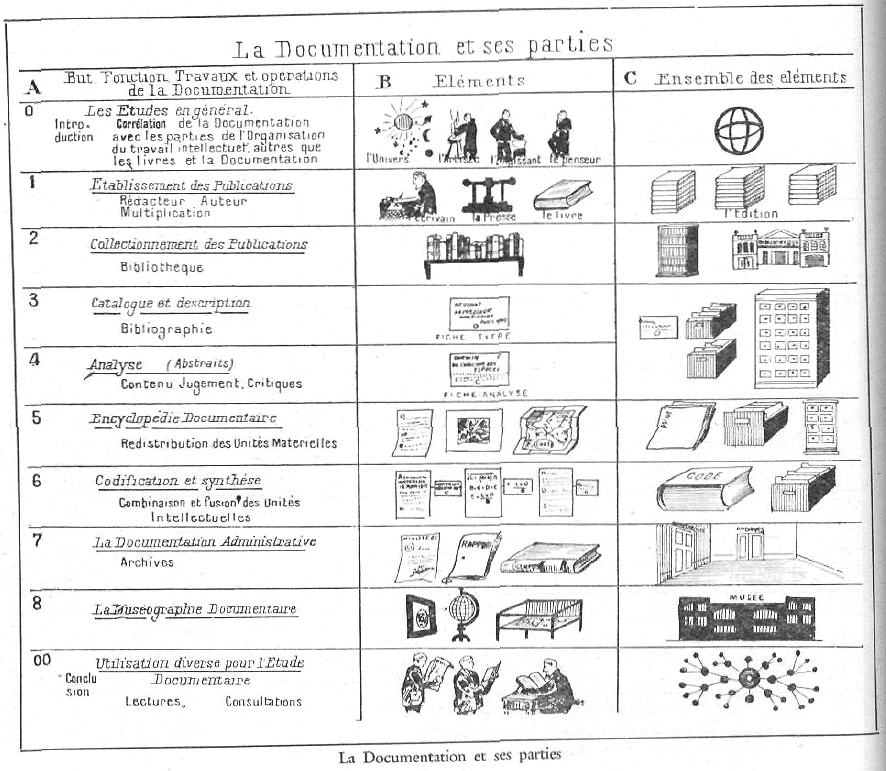 La Documentation et ses parties
A But Fonction, Travaux et opérations
de la Documentation
B Eléments
C Ensemble des eléments
0 Les Etudes en général.
Intro-
duction
Corrélation de la Documentation
avec les parties de l'Organisation
du travail intellectuel, autres que
les livres et la Documentation
l'Univers l'Artiste l'Agissant le penseur
1 Etablissement des Publications
Rédacteur Auteur
Multiplication
l'écrivain la Presse le livre
l'Edition
2 Collectionnement des Publications
Bibliotheque
3 Catalogue et description
Bibliographie
FICHE TITRE
4 Analyse (Abstraits)
Contenu Jugement, Critiques
FICHE ANALYSE
5 Encyclopédie Documentaire
Redistribution des Unités Materielles
6 Codification et synthése
Combinaison et fusion des Unités
Intellectuelles
CODE
7 La Documentation Administrative
Archives
MINISTERE
RAPPORT
8 La Muséographie Documentaire
MUSEE
00 Utilisation diverse pour l'Etude
Conclu
sion
Documentaire
Lectures, Consultations
La Documentation et ses parties